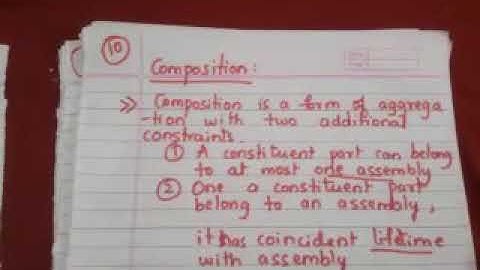 10
Composition:
>> Composition is a form of aggrega
-tion with two additional
constraints.
① A constituent part can belong
to at most one assembly
② One a constituent part
belong to an assembly,
it has coincident lifetime
with assembly